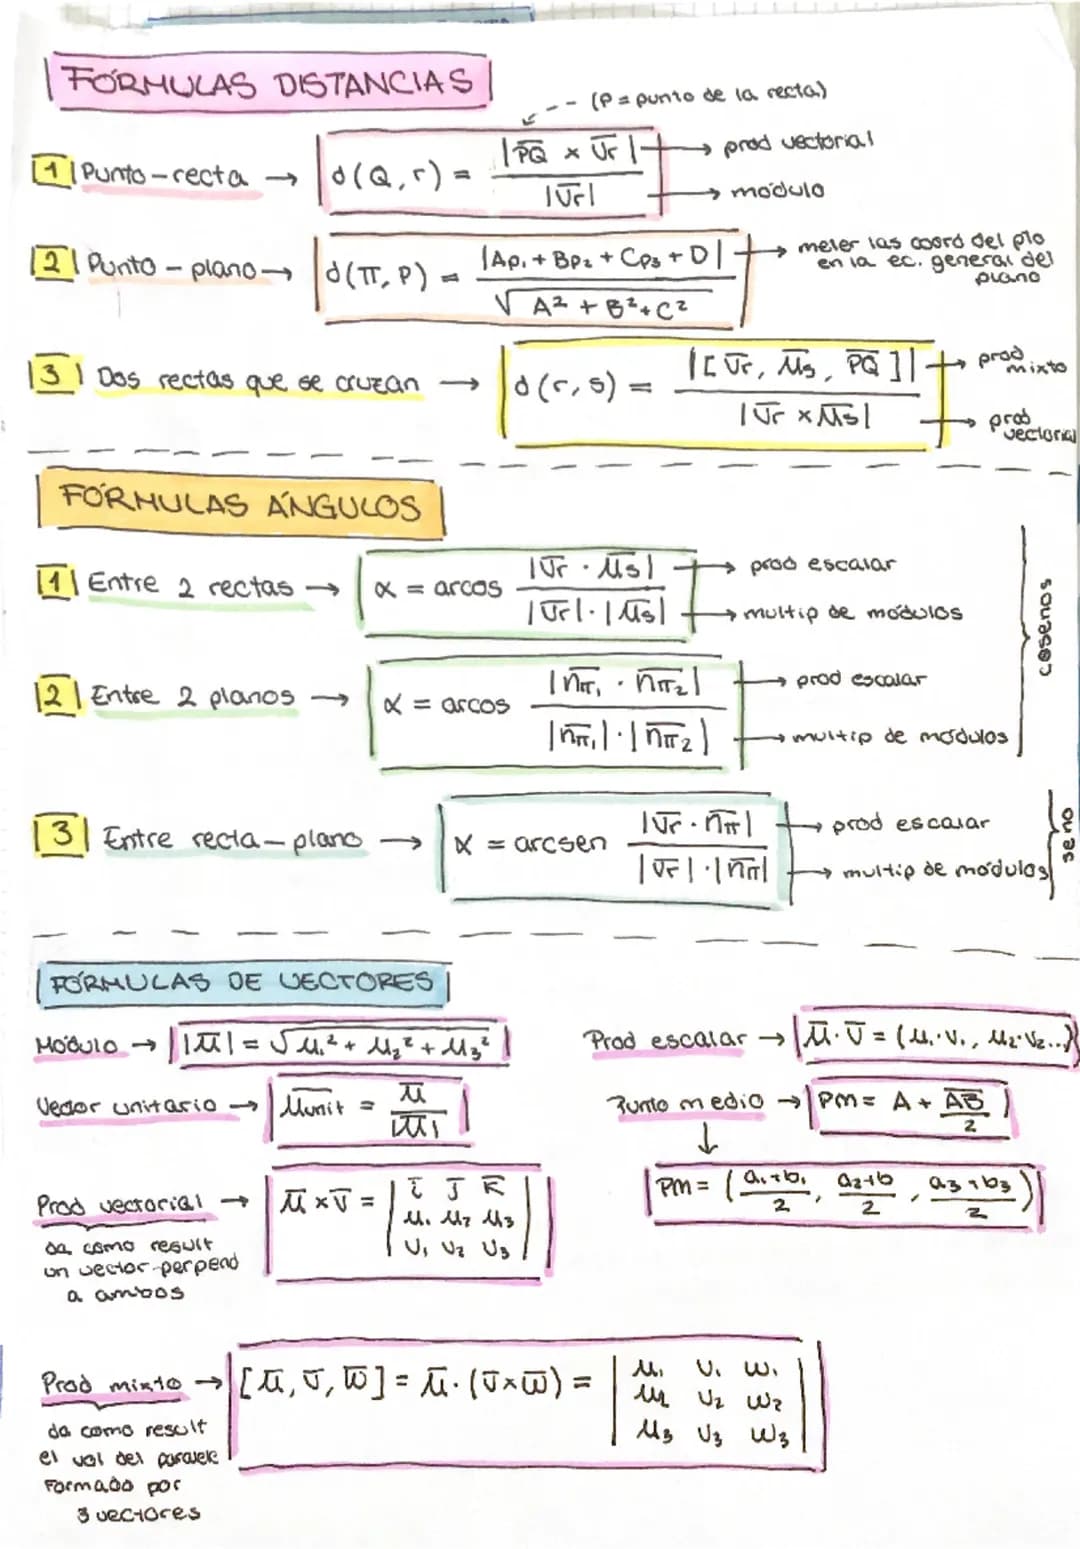 FÓRMULAS DISTANCIAS
(P = punto de la recta)
1 Punto-recta → d(Q,r) = |PQ × Vr| / |Vr| → prod vectorial → módulo
2 Punto-plano → d(π, P) = |Ap₁ + Bp₂ + Cp₃ + D| / √A² + B² + C² → meter las coord del pto
en la ec. general del
plano
3 Dos rectas que se cruzan → d(r,s) = |[Vr, Us, PQ]| / |Vr × Us| → prod mixto → prod vectorial
FÓRMULAS ÁNGULOS
1 Entre 2 rectas → α = arcos |Vr · Us| / |Vr| · |Us| → prod escalar → multip de módulos
2 Entre 2 planos → α = arcos |nπ₁ · nπ₂| / |nπ₁| · |nπ₂| → prod escalar → multip de módulos
cosenos
3 Entre recta-plano → α = arcsen |Vr · nπ| / |Vr| · |nπ| → prod escalar → multip de módulos
seno
FÓRMULAS DE VECTORES
Módulo → |u| = √u₁² + u₂² + u₃²
Prod escalar → u · v = (u₁·v₁, u₂·v₂...)
Vector unitario → u unit = u / |u|
Punto medio → PM = A + AB / 2
↓
PM = (a₁+b₁ / 2, a₂+b / 2, a₃+b₃ / 2)
Prod vectorial → u × v = | i j k
u₁ u₂ u₃
v₁ v₂ v₃ |
da como result
un vector perpend
a ambos
Prod mixto → [u, v, w] = u · (v × w) = | u₁ v₁ w₁
u₂ v₂ w₂
u₃ v₃ w₃ |
da como result
el vol del paralele
formado por
3 vectores